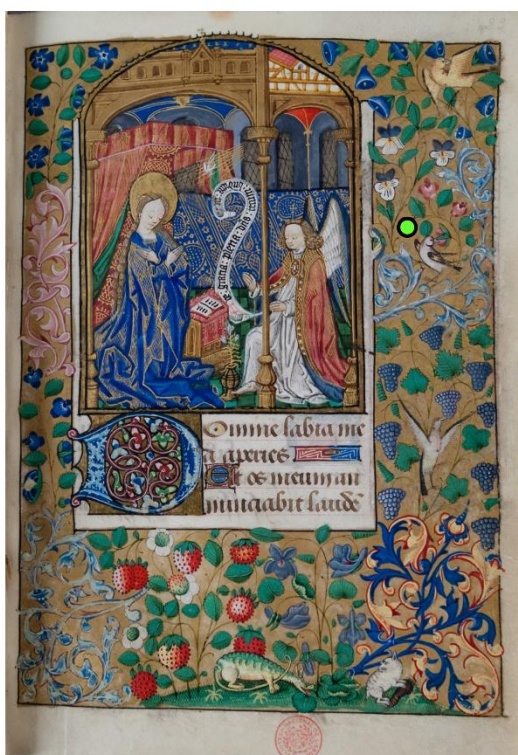 gratia plena dñs
Domine labia me
a aperies
Et os meum an
nunciabit laudē